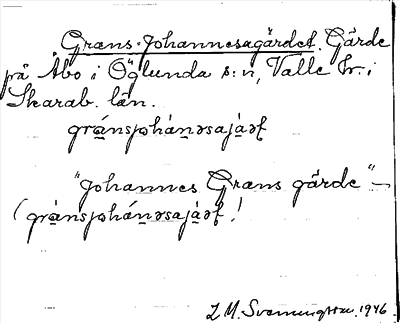 Græns-Johannesagärdet. Gärde
på Åbo i Öglunda s:n, Valle hr. i
Skarab. län.
gränsjohán̯əsajáət
"Johannes Græns gärde" –
(gränsjohán̯əsajáəf!
L M. Svenungsson. 1946.